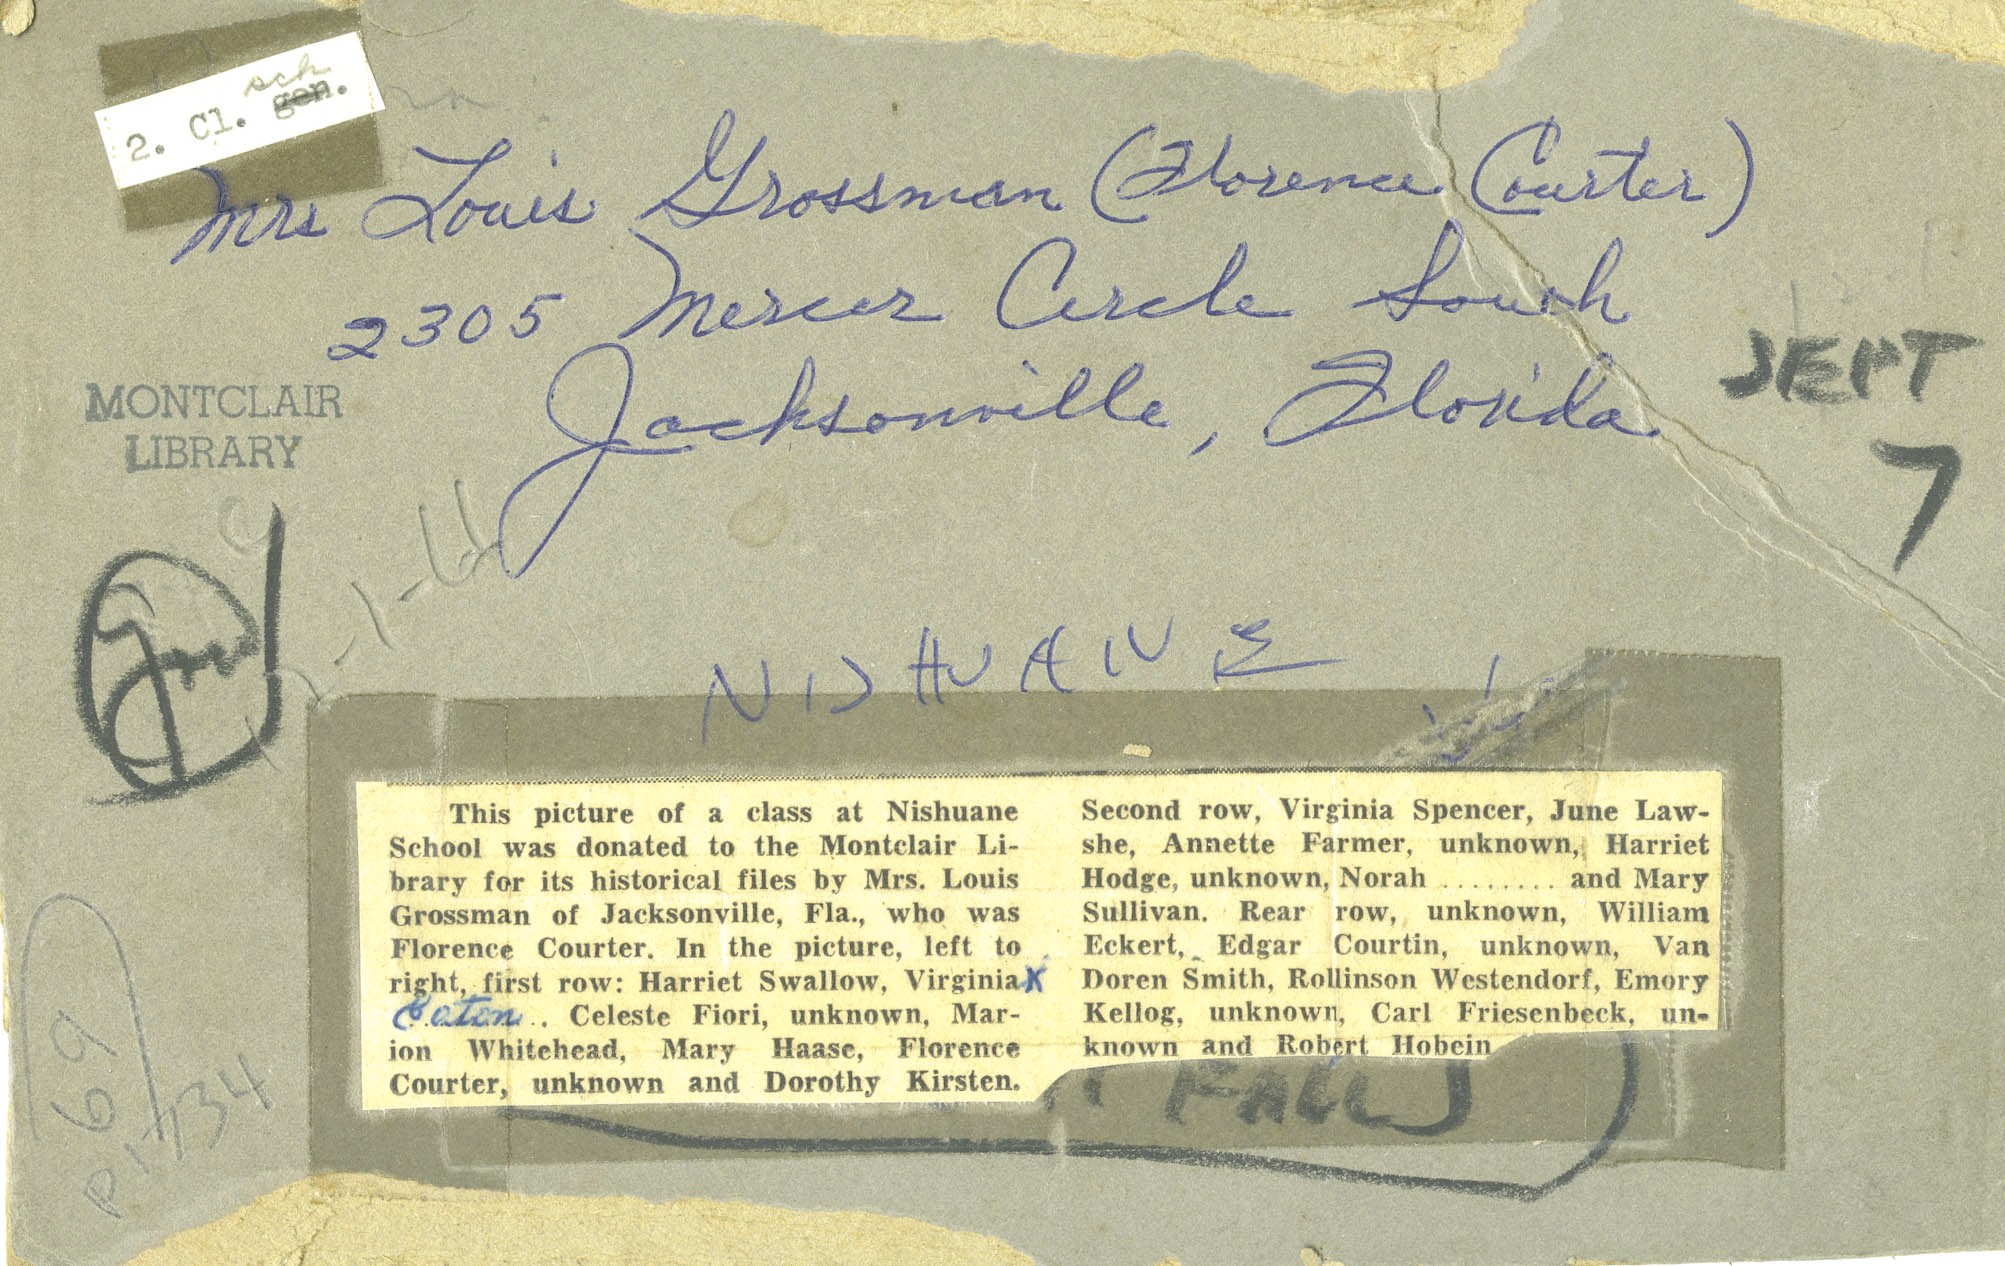 2. Cl. gen.
sch
Mrs Louis Grossman (Florence Courter)
2305 Mercer Circle South
Jacksonville, Florida
MONTCLAIR
LIBRARY
SEPT
7
NISHUANE
This picture of a class at Nishuane
School was donated to the Montclair Li-
brary for its historical files by Mrs. Louis
Grossman of Jacksonville, Fla., who was
Florence Courter. In the picture, left to
right, first row: Harriet Swallow, Virginia X
Eaton .. Celeste Fiori, unknown, Mar-
ion Whitehead, Mary Haase, Florence
Courter, unknown and Dorothy Kirsten.
Second row, Virginia Spencer, June Law-
she, Annette Farmer, unknown, Harriet
Hodge, unknown, Norah ........ and Mary
Sullivan. Rear row, unknown, William
Eckert, Edgar Courtin, unknown, Van
Doren Smith, Rollinson Westendorf, Emory
Kellog, unknown, Carl Friesenbeck, un-
known and Robert Hobein
FALLS
69
P. 1734